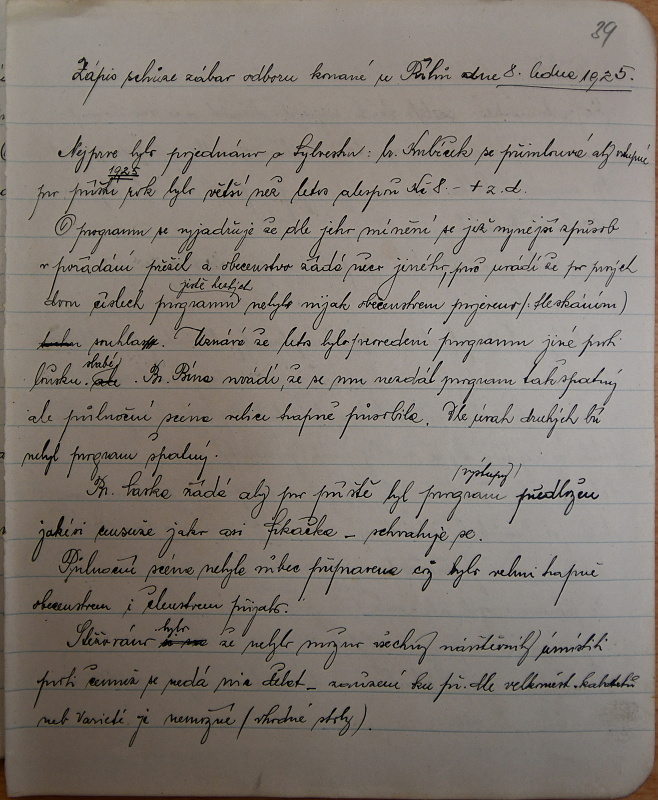 39
Zápis schůze zábav odboru konané u Bílků dne 8. ledna 1925.
Nejprve bylo projednáno o Sylvestru: br. Kubíček se přimlouvá aby vstupné
1925
pro příští rok bylo větší než letos alespoň Kč 8.- + z. d.
O programu se vyjadřuje že dle jeho mínění se již nynější způsob
v pořádání přežil a obecenstvo žádá něco jiného, proč uvádí že po prvých
jistě hezkých
dvou číslech programu nebylo nijak obecenstvem projeveno (tleskáním)
souhlas. Uznává že letos bylo provedení programu jiné proti
slabé
loňsku. Br. Bína uvádí, že se mu nezdál program tak špatný
ale půlnoční scéna velice trapně působila. Dle úvah druhých br.
nebyl program špatný.
(výstupy)
Br. Vaška žádá aby pro příště byl program předložen
jakési censuře jako asi škatka - schvaluje se.
Půlnoční scéna nebyla vůbec připravena což bylo velmi trapně
obecenstvem i členstvem přijato.
bylo
Stěžováno že nebylo možno všechny návštěvníky umístiti
proti čemuž se nedá nic dělat - zařízení ku př. dle velkoměst. kabaretů
neb Varieté je nemožné (vhodné stoly).